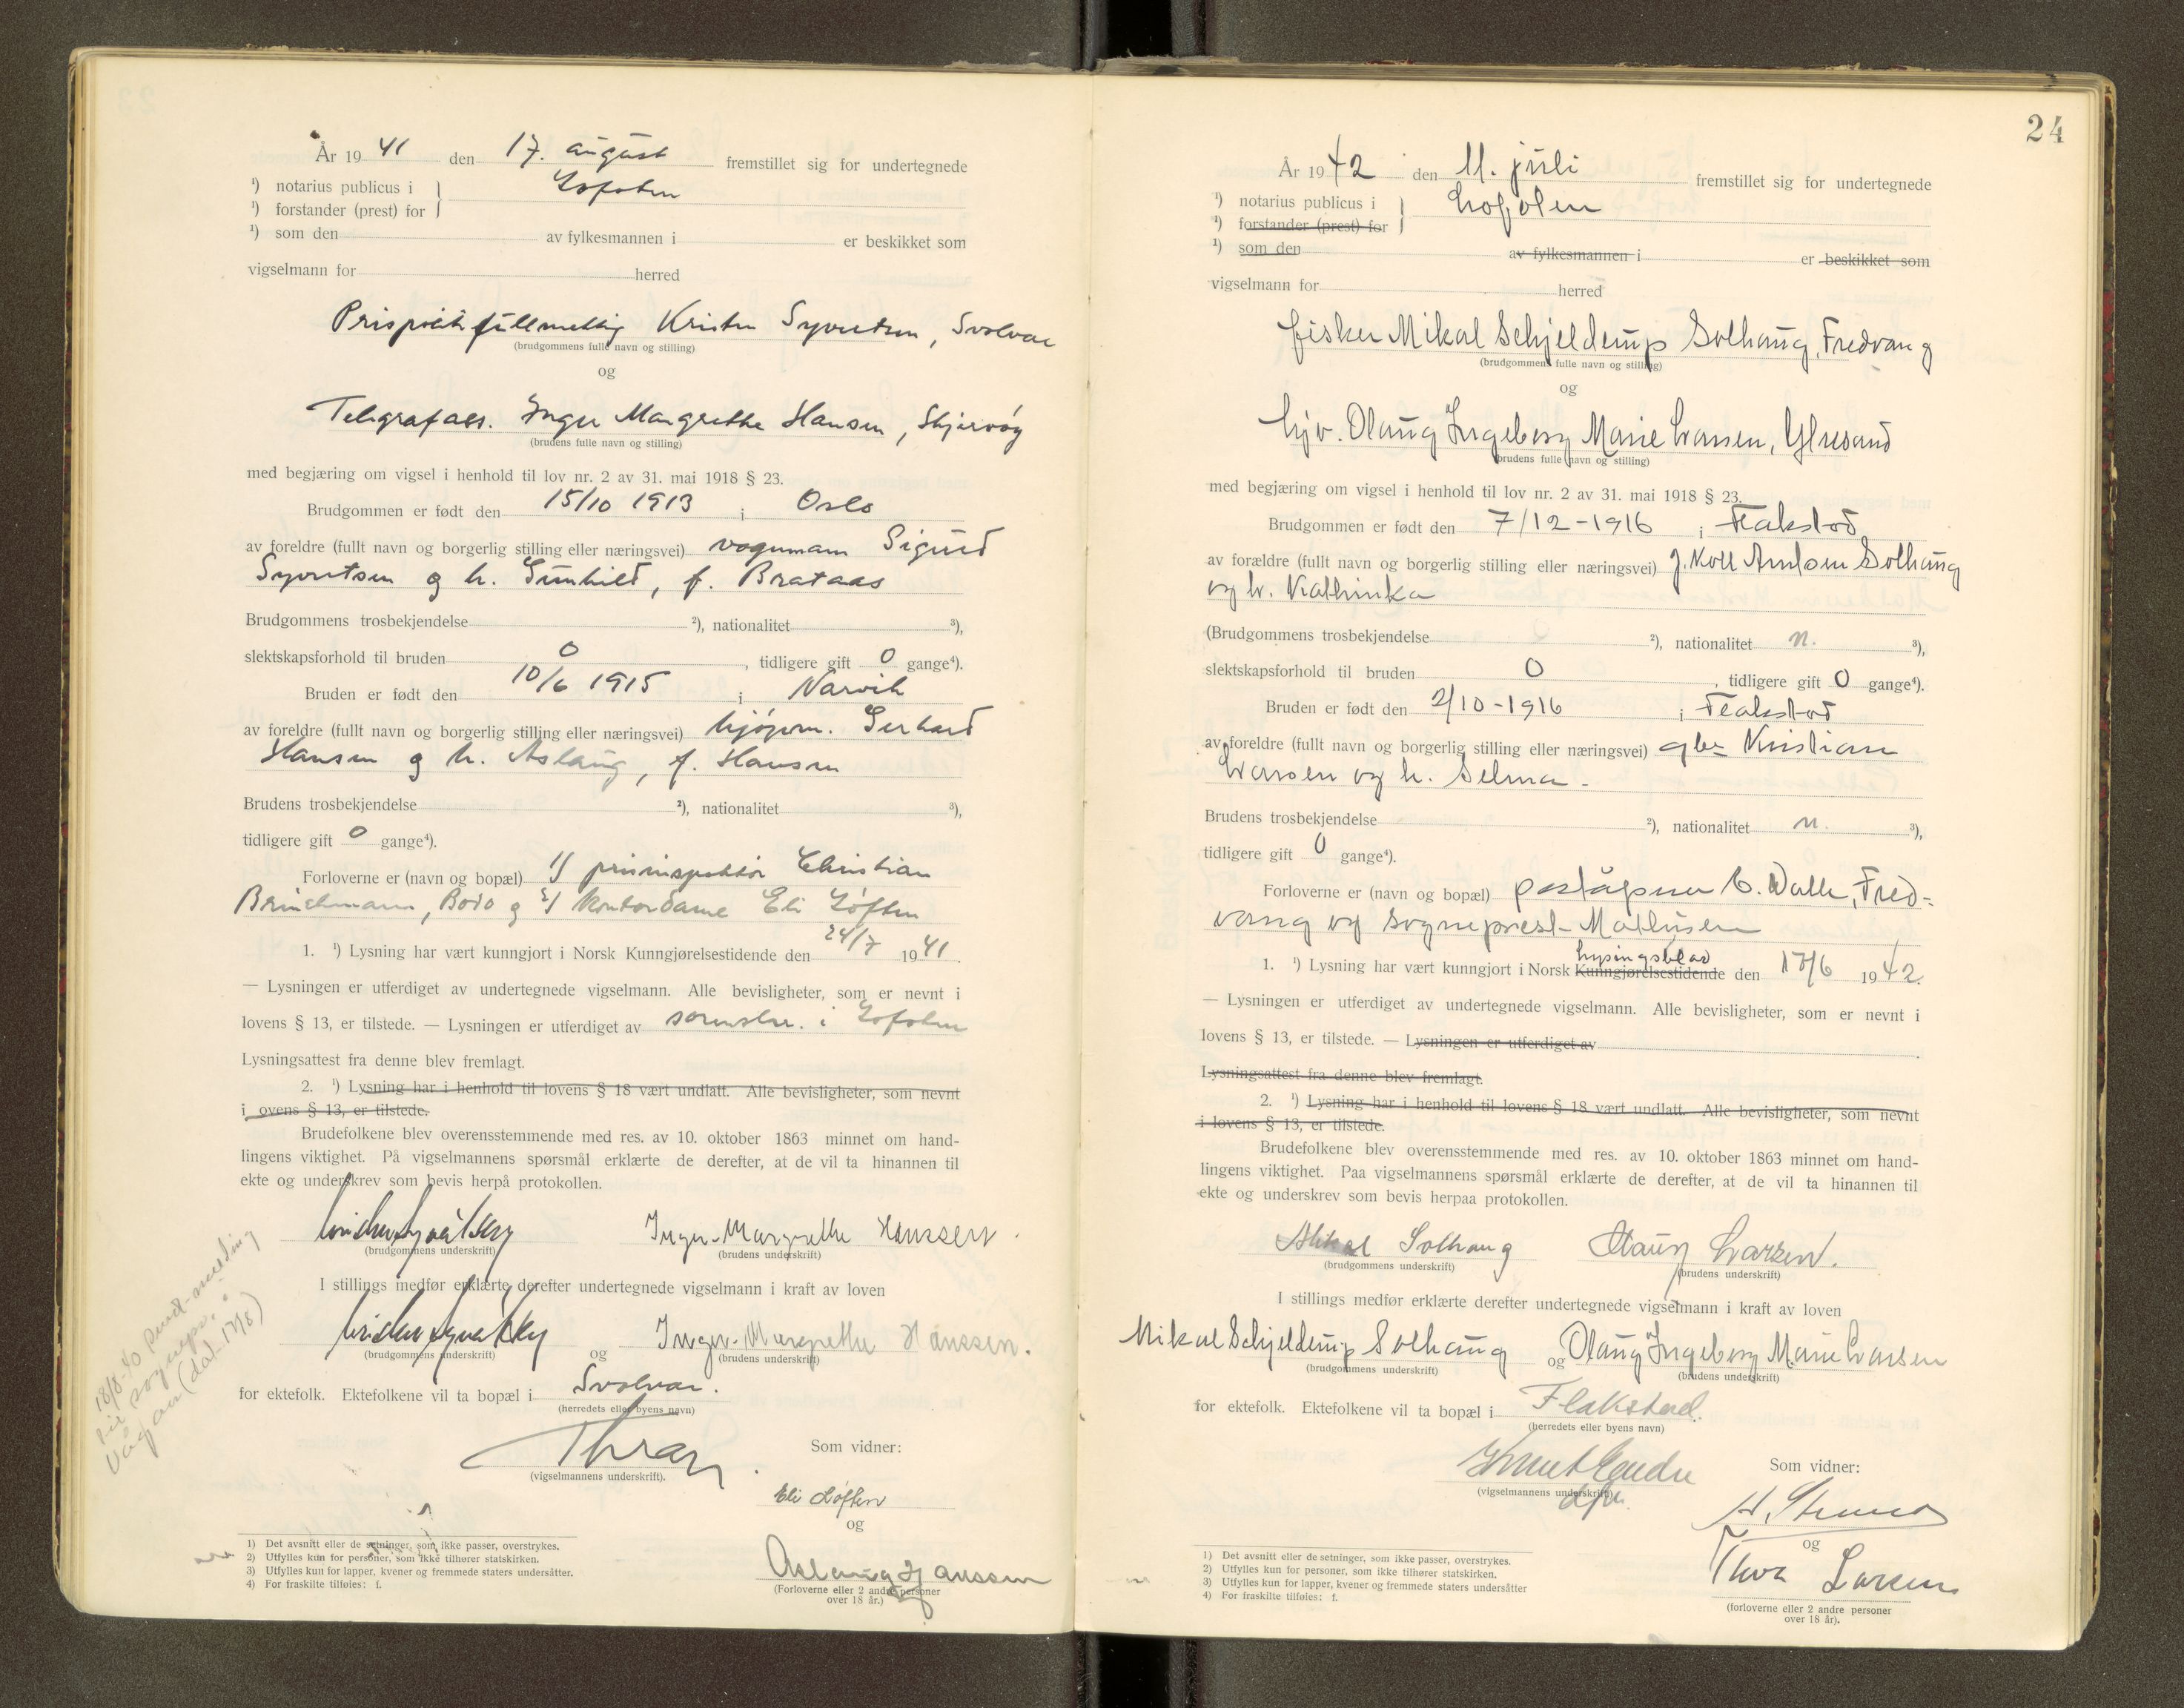 År 19 41 den 17. august fremstillet sig for undertegnede
¹) notarius publicus i } Lofoten
¹) forstander (prest) for
¹) som den av fylkesmannen i er beskikket som
vigselmann for herred
Prispolitifullmektig Kristen Syvertsen, Svolvær
(brudgommens fulle navn og stilling)
og
Telegrafass. Inger Margrethe Hansen, Skjervøy
(brudens fulle navn og stilling)
med begjæring om vigsel i henhold til lov nr. 2 av 31. mai 1918 § 23.
Brudgommen er født den 15/10 1913 i Oslo
av foreldre (fullt navn og borgerlig stilling eller næringsvei) vognmann Sigurd
Syvertsen og h. Gunhild, f. Brataas
Brudgommens trosbekjendelse ²), nationalitet ³),
slektskapsforhold til bruden 0, tidligere gift 0 gange⁴).
Bruden er født den 10/6 1915 i Narvik
av foreldre (fullt navn og borgerlig stilling eller næringsvei) kjøpm. Gerhard
Hansen og h. Aslaug, f. Hansen
Brudens trosbekjendelse ²), nationalitet ³),
tidligere gift 0 gange⁴).
Forloverne er (navn og bopæl) 1) prisinspektør Christian
Brinchmann, Bodø og 2) kontordame Eli Løften
1. ¹) Lysning har vært kunngjort i Norsk Kunngjørelsestidende den 24/7 1941.
— Lysningen er utferdiget av undertegnede vigselmann. Alle bevisligheter, som er nevnt i
lovens § 13, er tilstede. — Lysningen er utferdiget av sorenskr. i Lofoten
Lysningsattest fra denne blev fremlagt.
2. ¹) Lysning har i henhold til lovens § 18 vært undlatt. Alle bevisligheter, som nevnt
i ovens § 13, er tilstede.
Brudefolkene blev overensstemmende med res. av 10. oktober 1863 minnet om hand-
lingens viktighet. På vigselmannens spørsmål erklærte de derefter, at de vil ta hinannen til
ekte og underskrev som bevis herpå protokollen.
Inger-Margrethe Hanssen.
(brudgommens underskrift) (brudens underskrift)
I stillings medfør erklærte derefter undertegnede vigselmann i kraft av loven
og Inger-Margrethe Hanssen.
(brudgommens underskrift) (brudens underskrift)
for ektefolk. Ektefolkene vil ta bopæl i Svolvær.
(herredets eller byens navn)
Som vidner:
(vigselmannens underskrift).
Eli Løften
og
Aslaug Hanssen
(Forloverne eller 2 andre personer
over 18 år.)
18/8-40 sendt melding
til sogneps. i
Vågan (dat. 17/8)
1) Det avsnitt eller de setninger, som ikke passer, overstrykes.
2) Utfylles kun for personer, som ikke tilhører statskirken.
3) Utfylles kun for lapper, kvener og fremmede staters undersåtter.
4) For fraskilte tilføies: f.
24
År 1942 den 11. juli fremstillet sig for undertegnede
¹) notarius publicus i } Lofoten
¹) forstander (prest) for
¹) som den av fylkesmannen i er beskikket som
vigselmann for herred
fisker Mikal Schjelderup Solhaug, Fredvang
(brudgommens fulle navn og stilling)
og
hjv. Olaug Ingeborg Marie Larsen, Ytresand
(brudens fulle navn og stilling)
med begjæring om vigsel i henhold til lov nr. 2 av 31. mai 1918 § 23.
Brudgommen er født den 7/12-1916 i Flakstad
av forældre (fullt navn og borgerlig stilling eller næringsvei) J. Koll Arntsen Solhaug
og h. Kathinka
(Brudgommens trosbekjendelse ²), nationalitet n. ³),
slektskapsforhold til bruden 0, tidligere gift 0 gange⁴).
Bruden er født den 2/10-1916 i Flakstad
av foreldre (fullt navn og borgerlig stilling eller næringsvei) gbr Kristian
Larsen og h. Selma -
Brudens trosbekjendelse ²), nationalitet n. ³),
tidligere gift 0 gange⁴).
Forloverne er (navn og bopæl) poståpner C. Walle, Fred-
vang og sogneprest Mathisen
lysingsblad
1. ¹) Lysning har vært kunngjort i Norsk Kunngjørelsestidende den 17/6 1942.
— Lysningen er utferdiget av undertegnede vigselmann. Alle bevisligheter, som er nevnt i
lovens § 13, er tilstede. — Lysningen er utferdiget av
Lysningsattest fra denne blev fremlagt.
2. ¹) Lysning har i henhold til lovens § 18 vært undlatt. Alle bevisligheter, som nevnt
i lovens § 13, er tilstede.
Brudefolkene blev overensstemmende med res. av 10. oktober 1863 minnet om hand-
lingens viktighet. Paa vigselmannens spørsmål erklærte de derefter, at de vil ta hinannen til
ekte og underskrev som bevis herpaa protokollen.
Mikal Solhaug Olaug Larsen.
(brudgommens underskrift) (brudens underskrift)
I stillings medfør erklærte derefter undertegnede vigselmann i kraft av loven
Mikal Schjelderup Solhaug og Olaug Ingeborg Marie Larsen
(brudgommens underskrift) (brudens underskrift)
for ektefolk. Ektefolkene vil ta bopæl i Flakstad.
(herredets eller byens navn)
Som vidner:
(vigselmannens underskrift).
dfm.
og
Thora Larsen
(forloverne eller 2 andre personer
over 18 år).
1) Det avsnitt eller de setninger, som ikke passer, overstrykes.
2) Utfylles kun for personer, som ikke tilhører statskirken.
3) Utfylles kun for lapper, kvener og fremmede staters undersåtter
4) For fraskilte tilføies: f.